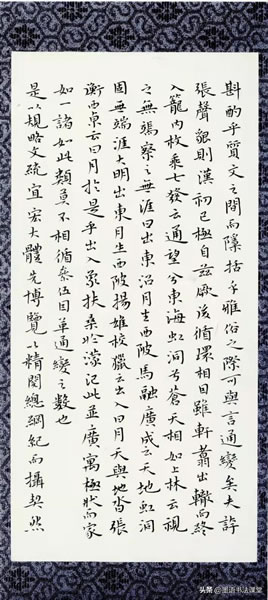 斟酌乎質文之間而隱括乎雅俗之際可與言通變矣夫誇
張聲貌則漢初已極自茲厥後循環相因雖軒翥出轍而終
入籠内枚乘七發云通望兮東海虹洞兮蒼天相如上林云視
之無端察之無涯日出東沼月生西陂馬融廣成云天地虹洞
固無端涯大明出東月生西陂揚雄校獵云出入日月天與地沓張
衡西京云日月於是乎出入象扶桑於濛汜此並廣寓極狀而家
如一諸如此類莫不相循參伍因革通變之數也
是以規略文統宜宏大體先博覽以精閱總綱紀而攝契然
头条 @墨语书法课堂